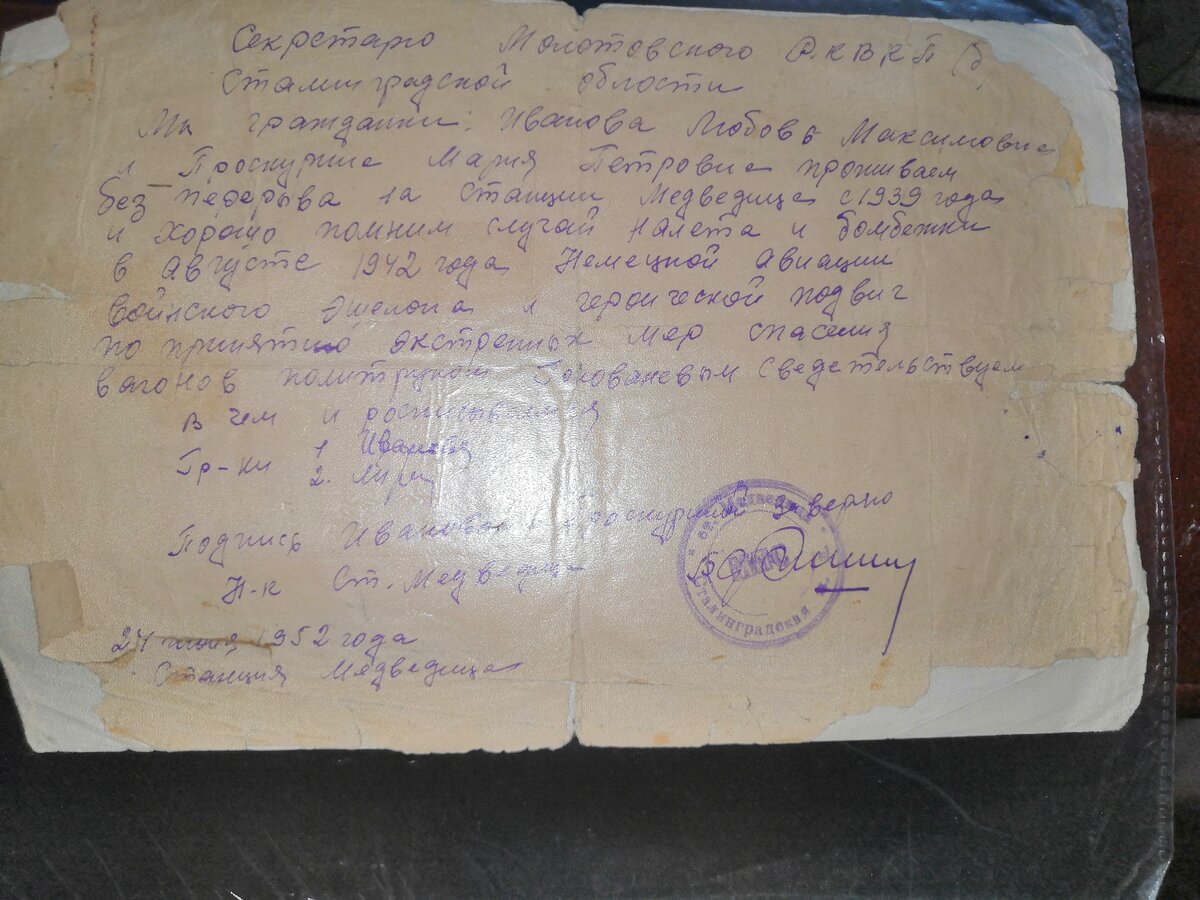 Секретарю Молотовского Р.К ВКП(б)
Сталинградской области
Мы гражданки: Иванова Любовь Максимовне
и Проскурине Мария Петровне проживаем
без перерыва на Станции Медведица с 1939 года
и хорошо помним случай налета и бомбежки
в Августе 1942 года Немецкой Авиации
воинского эшелона и героической подвиг
по принятию экстренных мер спасения
вагонов политруком сведетельствуем
в чем и росписываемся
Гр-ки 1 Иванова
2.
Подпись Ивановой и Проскуриной заверяю
Н-к Ст. Медведица
24 1952 года
Станция Медведица
ст. Медведица
Сталинградская